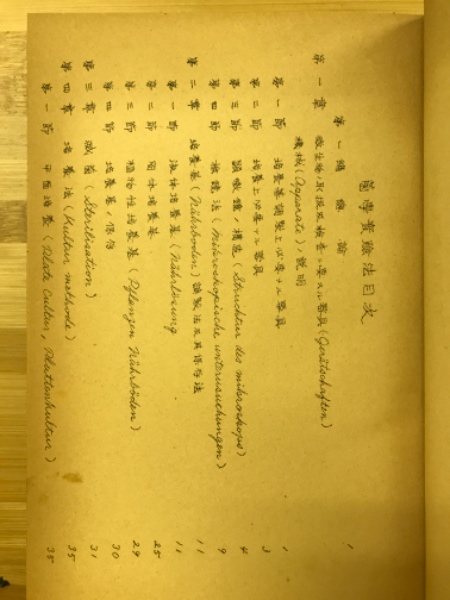 菌學實驗法目次
第一編 總論 1
第一章 微生物ノ取扱及検査ニ要スル器具(Gerätschaften)
機械(Apparate)ノ説明
第一節 培養基調製上必要ナル器具 1
第二節 培養上必要ナル器具 3
第三節 顕微鏡ノ構造(Structur des mikroskops) 4
第四節 検鏡法(Mikroskopische untersuchungen) 9
第二章 培養基(Nährboden)調製法及其保存法 11
第一節 液体培養基(Nährlösung) 11
第二節 固体培養基 25
第三節 植物性培養基(Pflanzen Nährböden) 29
第四節 培養基ノ保存 30
第三章 滅菌(Sterilisation) 31
第四章 培養法(Kultur methode) 35
第一節 平面培養(Plate Cultur, Plattenkultur) 35